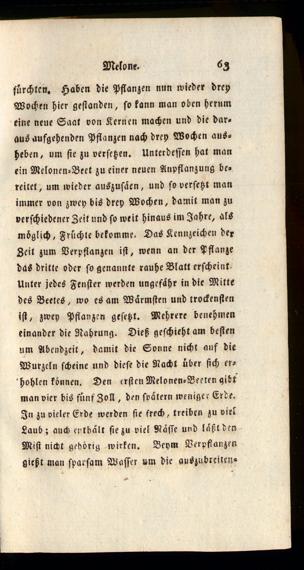 Melone. 63
fürchten. Haben die Pflanzen nun wieder drey
Wochen hier gestanden, so kann man oben herum
eine neue Saat von Kernen machen und die dar-
aus aufgehenden Pflanzen nach drey Wochen aus-
heben, um sie zu versetzen. Unterdessen hat man
ein Melonen-Beet zu einer neuen Anpflanzung be-
reitet, um wieder auszusäen, und so versetzt man
immer von zwey bis drey Wochen, damit man zu
verschiedener Zeit und so weit hinaus im Jahre, als
möglich, Früchte bekomme. Das Kennzeichen der
Zeit zum Verpflanzen ist, wenn an der Pflanze
das dritte oder so genannte rauhe Blatt erscheint.
Unter jedes Fenster werden ungefähr in die Mitte
des Beetes, wo es am Wärmsten und trockensten
ist, zwey Pflanzen gesetzt. Mehrere benehmen
einander die Nahrung. Dieß geschieht am besten
um Abendzeit, damit die Sonne nicht auf die
Wurzeln scheine und diese die Nacht über sich er-
hohlen können. Den ersten Melonen-Beeten gibt
man vier bis fünf Zoll, den spätern weniger Erde.
In zu vieler Erde werden sie frech, treiben zu viel
Laub; auch enthält sie zu viel Nässe und läßt den
Mist nicht gehörig wirken. Beym Verpflanzen
gießt man sparsam Wasser um die auszubreiten-